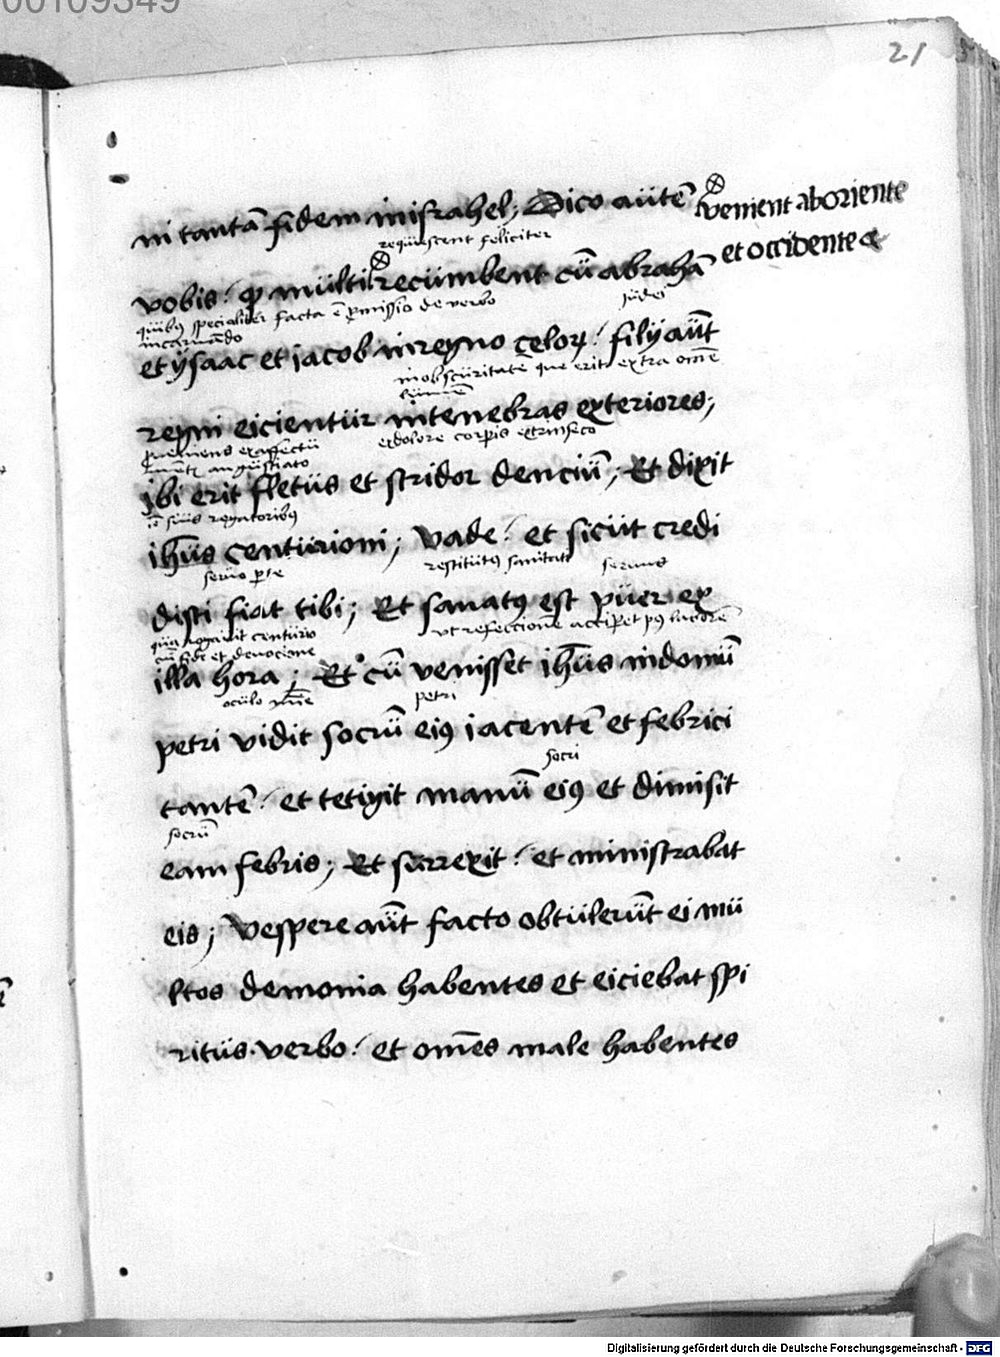 00109349
21
ni tantā fidem inisrahel; Dico aūtē ⊗ venient ab oriente
et occidente &
requiescent feliciter
vobis: ꝙ mūlti ⊗ recūmbent cū abrahā
quibꝰ specialiter facta ē ꝓmissio de verbo
incarnādo
jūdei
et ysaac et iacob in regno celoꝝ: filij aūt
in obscūritatē que erit extra omē
lūmē
regni eicientūr in tenebras exteriores;
premens ex affectū
angūstiato
ex dolore corꝑis extrinseco
ibi erit fletūs et stridor denciū; Et dixit
sūis rogatoribꝰ
ihūs centūrioni; vade: et sicūt credi
servo
restitūtꝰ sanitati
servus
disti fiat tibi; Et sanatꝰ est pūer ex
qua rogavit centūrio
cū fide et devocione
vt refeccionē acciperet pꝰ laborē
illa hora; Et cū venisset ihūs in domū
ocūlo
petri
petri vidit socrū eiꝰ iacentē et febrici
socri
tantē: et tetigit manū eiꝰ et dimisit
socrū
eam febris; Et sūrrexit: et ministrabat
eis; Vespere aūt facto obtūlerūt ei mū
ltos demonia habentes et eiciebat spi
ritūs verbo: et om̄es male habentes
Digitalisierung gefördert durch die Deutsche Forschungsgemeinschaft - DFG